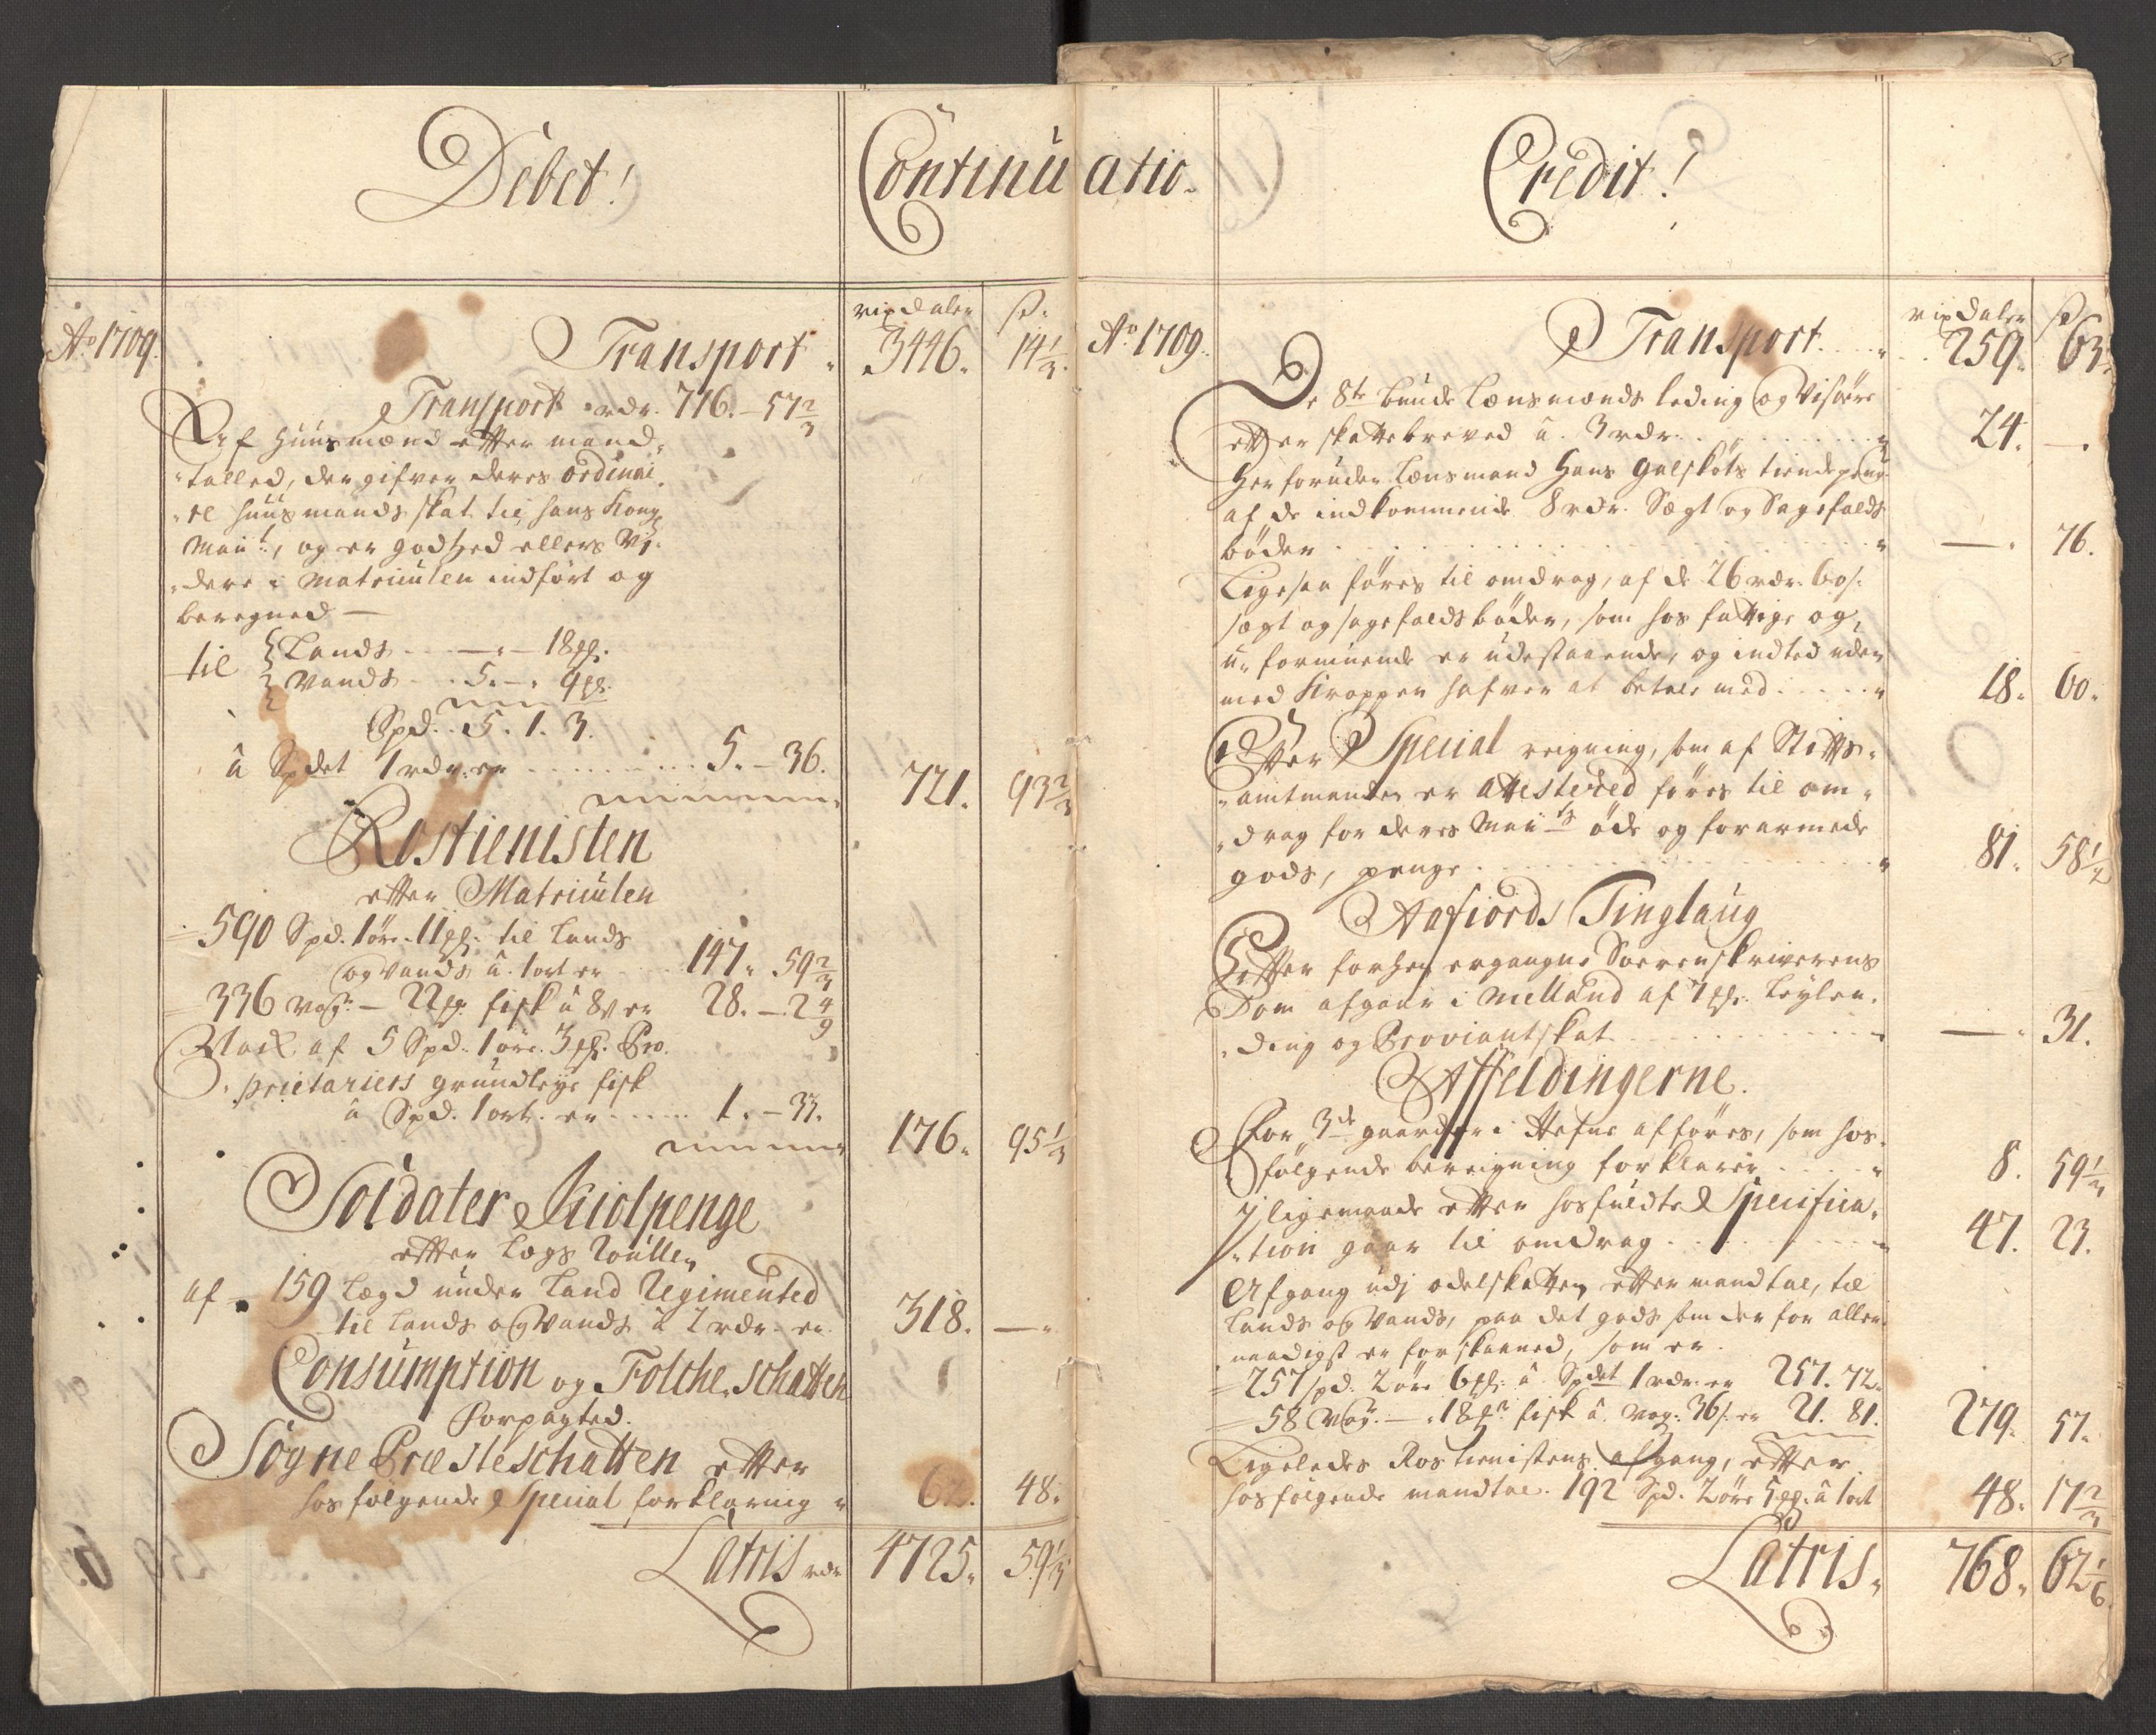 Debet!
Continu
rixdaler
ß.
Ao 1709.
Transport
3446.
14 1/3.
Transport rdr. 716. – 57 2/3
Aef Huusmænd efter mand-
talled, der gifver deres ordinai-
re huusmands skat til hans Kong
Mait:, og er godtzed ellers vi-
dere i Matriculen indført og
beregned —
til
Lands — 18 pl.
Vands 5. – 9 pl.
Spd. 5. 1. 3.
à Spdet 1 rdr. er 5. – 36.
721.
93 2/3
Rostienisten
efter Matriculen
590 Spd. 1 øre. 11 pl. til Lands
og Vands à 1 ort er 147. 59 2/3
336 vog: – 22 pd. fisk à 8 ß er 28. – 2 4/9
af 5 Spd. 1 øre. 3 pl. Pro-
prietariers grundleye fisk
à Spd. 1 ort. er 1. – 33.
176.
95 1/3
Soldater Kiolpenge
efter Legs Roullen
af 159 Lægd under Land Regimented
til Lands og Vands à 2 rdr. er
318.
—
Consumption og Folche Schatten
Forpagted.
Sogne Præste Schatten efter
hosfølgende Special forklaring
62.
48.
Latris rdr
4725.
59 1/3
atio.
Credit!
rixdaler
ß
Ao 1709.
Transport
259.
63.
De 8te bunde Lænsmænds leding og Visøere
efter skattebreved à 3 rdr.
24.
—
Her foruden Lænsmand Hans Galskøts tiendepenge
af de indkommende 8 rdr. Sagt og Sagefalds
bøder
—
76.
Ligesaa føres til omdrag, af de 26 rdr. 60 ß.
sagt og sagefaldsbøder, som hos fattige og
u-formuende er udestaaende, og indted uden
med Kroppen hafver at betale med
18.
60.
Efter Special reigning, som af Stifts-
amtmanden er attestered føres til om-
drag for deres Maits øde og forarmede
gods, penge
81.
58 1/2
Aafiords Tinglaug
Efter forhen ergangne Soerenskriverens
Dom afgaar i Melland af 1 pl. Leylen-
ding og Proviantskat
—
31.
Affeldingerne.
For 3de gaarder i Hefne afføres, som hos-
følgende bereigning forklarer
8.
59 1/2
J ligemaade efter hosfuldte Specifica-
tion gaar til omdrag
47.
23.
Afgang udj odelskatten efter mandtal, til
Lands og Vands, paa det gods som der for aller-
naadigst er forskaaned, som er
257 spd. 2 øre 6 pl. à Spdet 1 rdr. er 257. 72.
58 Vog. – 18 pd. fisk à Vog. 36 ß. er 21. 81.
279.
57.
Ligeledes Rostienistens afgang, efter
hosfølgende mandtal. 192 Spd. 2 øre 5 pl. à 1 ort
48.
17 2/3
Latris.
768.
62 1/6